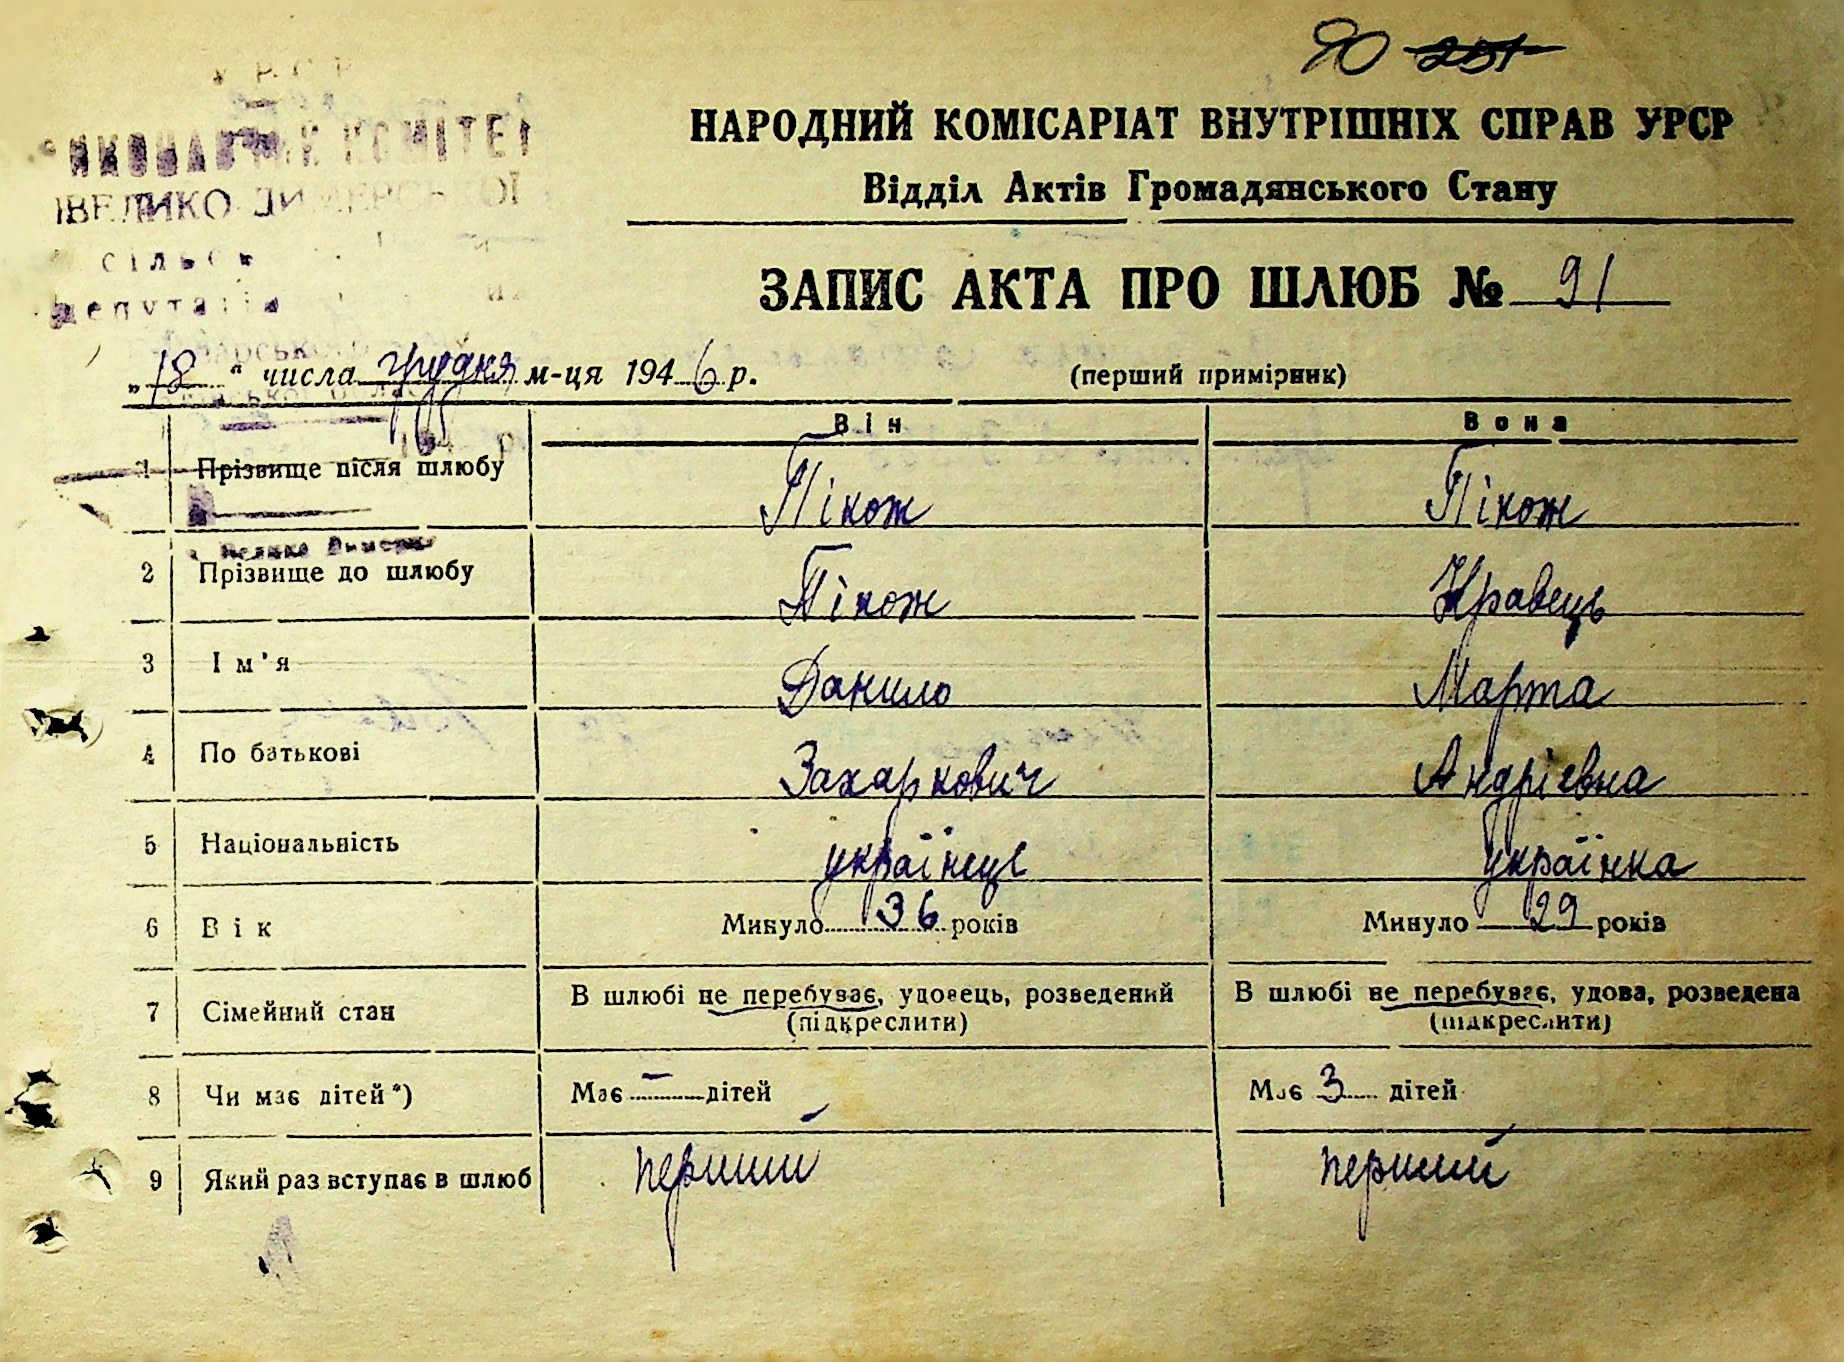 90 251
УРСР
ВИКОНАВЧИЙ КОМІТЕТ
ВЕЛИКО-ДИМЕРСЬКОЇ
сільськ
депутатів
НАРОДНИЙ КОМІСАРІАТ ВНУТРІШНІХ СПРАВ УРСР
Відділ Актів Громадянського Стану
ЗАПИС АКТА ПРО ШЛЮБ № 91
„18“ числа грудня м-ця 1946 р.
(перший примірник)
Він Вона
1 Прізвище після шлюбу Пікож Пікож
Велика Димерка
2 Прізвище до шлюбу Пікож Кравець
3 Ім'я Данило Марта
4 По батькові Захаркович Андрієвна
5 Національність українець українка
6 Вік Минуло 36 років Минуло 29 років
7 Сімейний стан В шлюбі не перебуває, удовець, розведений В шлюбі не перебуває, удова, розведена
(підкреслити) (підкреслити)
8 Чи має дітей*) Має – дітей Має 3 дітей
9 Який раз вступає в шлюб перший перший